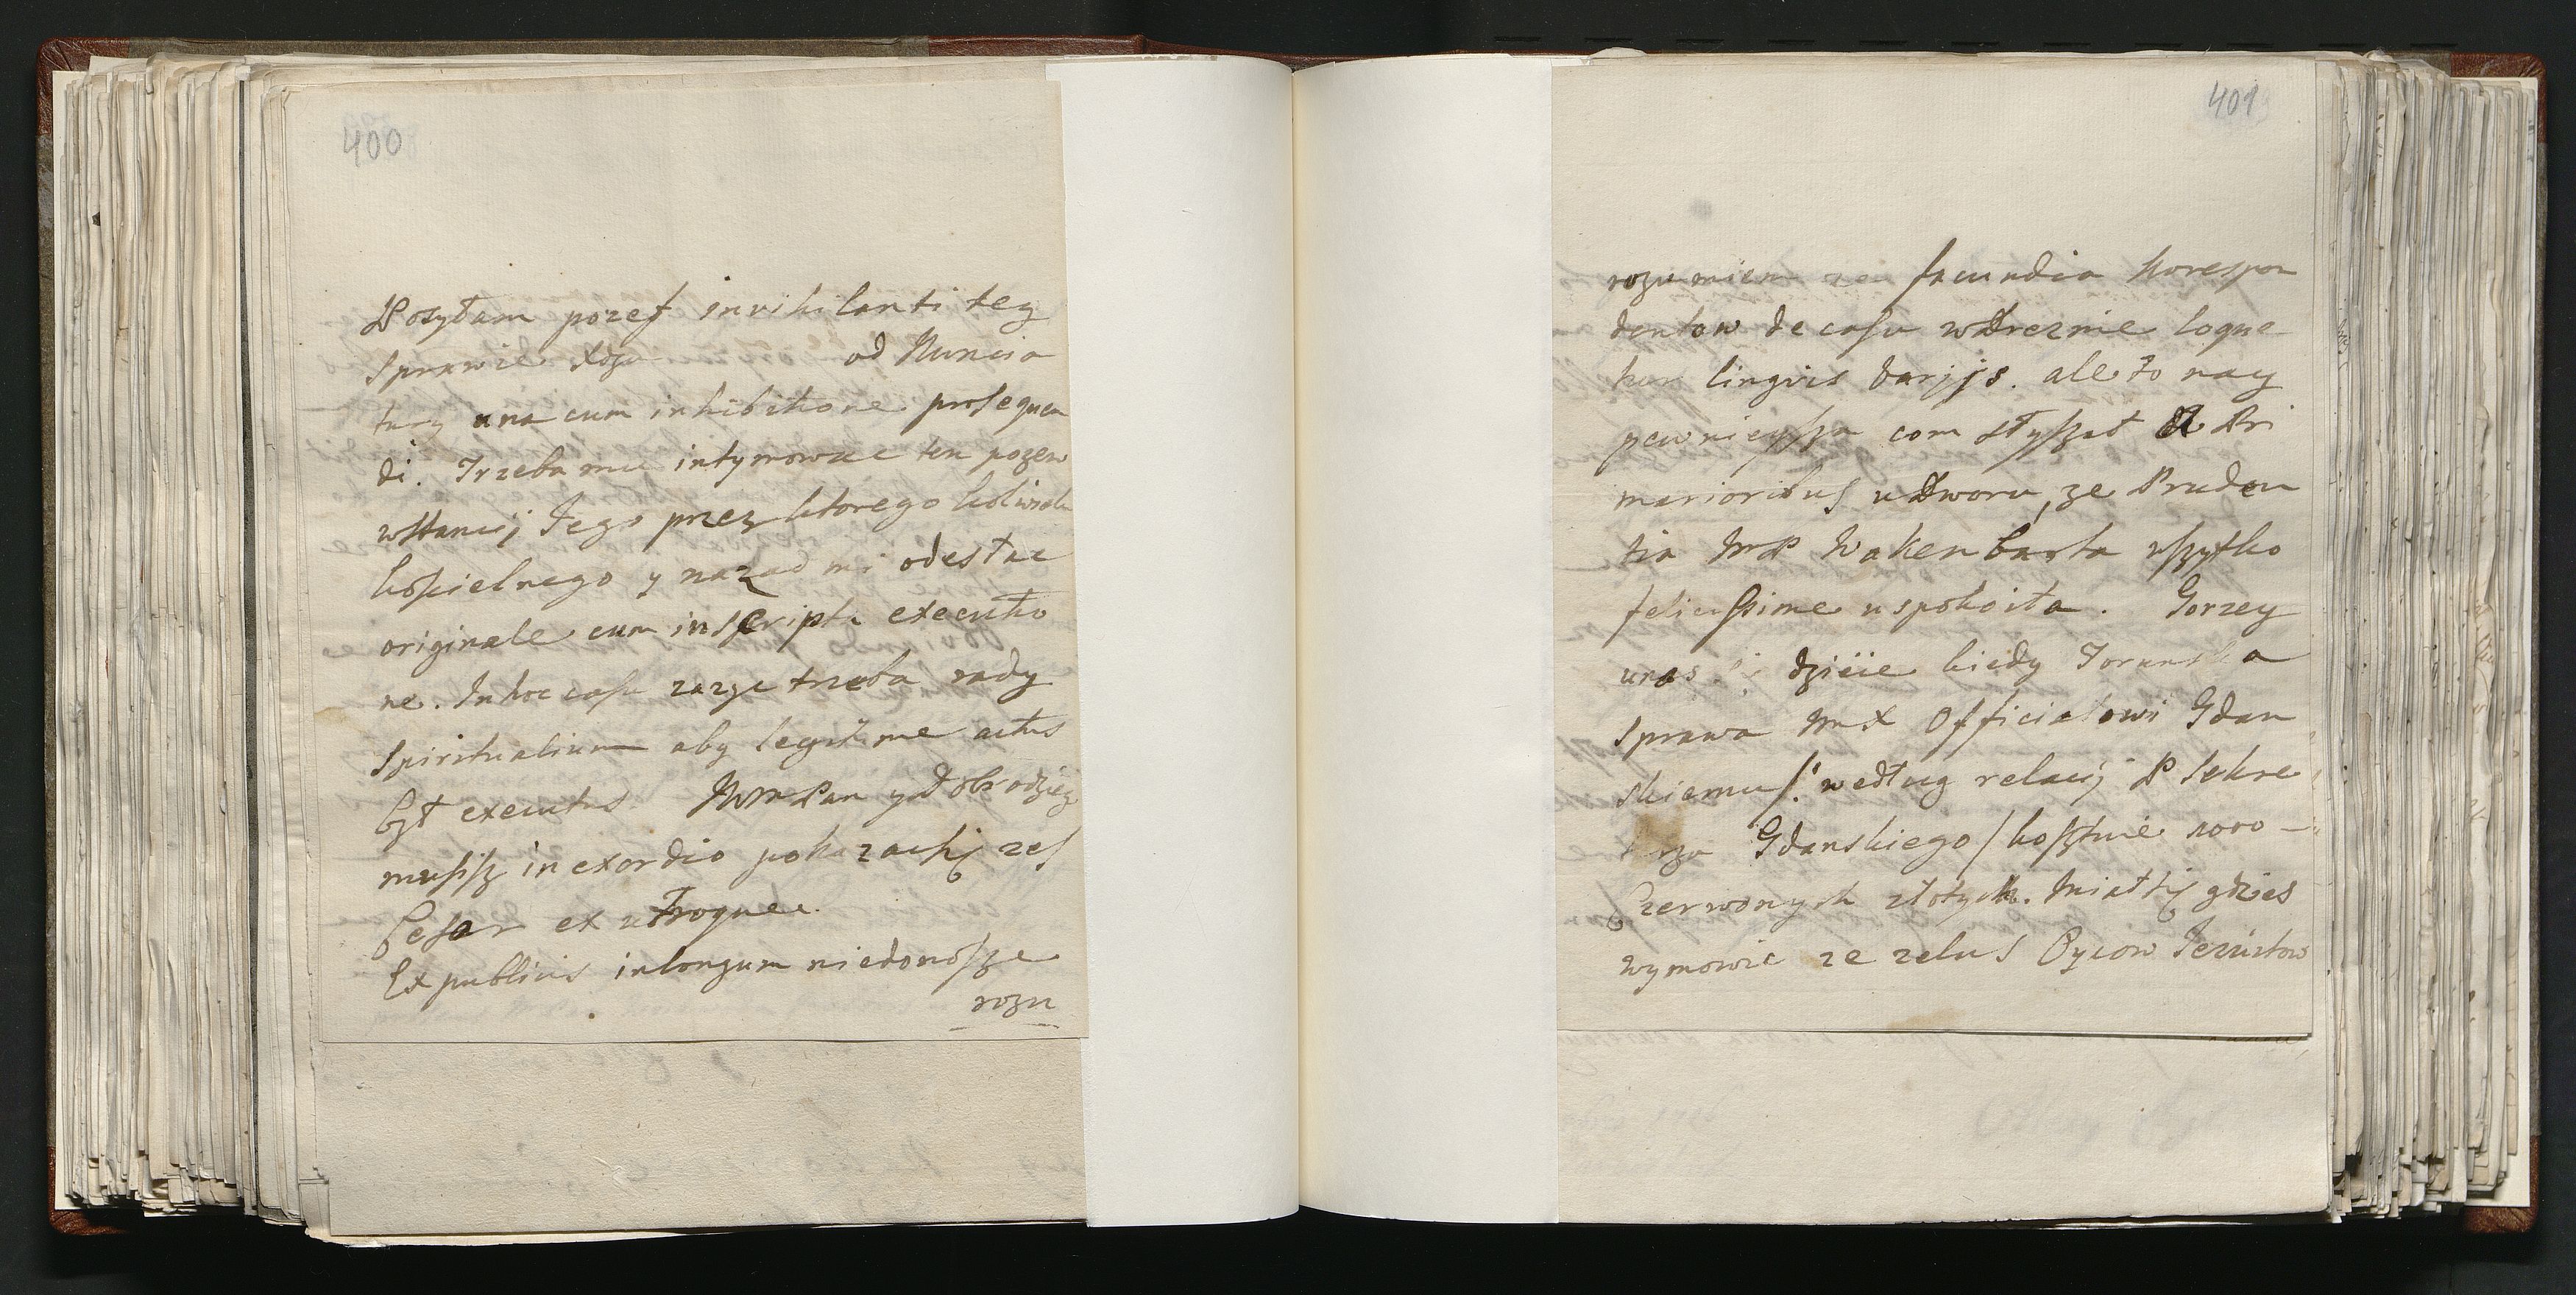 400
Posyłam pozef invihilanti tey
sprawie Xdza od Nuncia
tury una cum inhibitione prosequen
di. Trzeba mu intymowac ten pozew
wstancij Jego przez ktorego kolwiek
koscielnego y nazad mi odesłac
originale cum inscripta executio
ne. In hoc casu zazyc trzeba rady
Spiritualium aby legitime actus
był executus. WMPan y Dobrodziey
musisz in exordio pokazac się zes
Cesar ex utroque.
Ex publicis in longum niedonosze
rozu
401
rozumiem facundia korespon
dentow de casu w Dreznie loque
tur lingvis varijs. ale to nay
pewnieysza com słyszał a Pri
marioribus u Dworu, ze Pruden
tia MP Wakenbarta wszytko
felicissime uspokoiła. Gorzey
u nas dzieie kiedy Torunska
sprawa MX Officiałowi Gdan
skiemu/: według relacij P Sekre
rza Gdanskiego / kosztuie 1000 -
Czerwonych złotych. Miał się gdzies
wymowic ze zelus Oycow Jezuitow